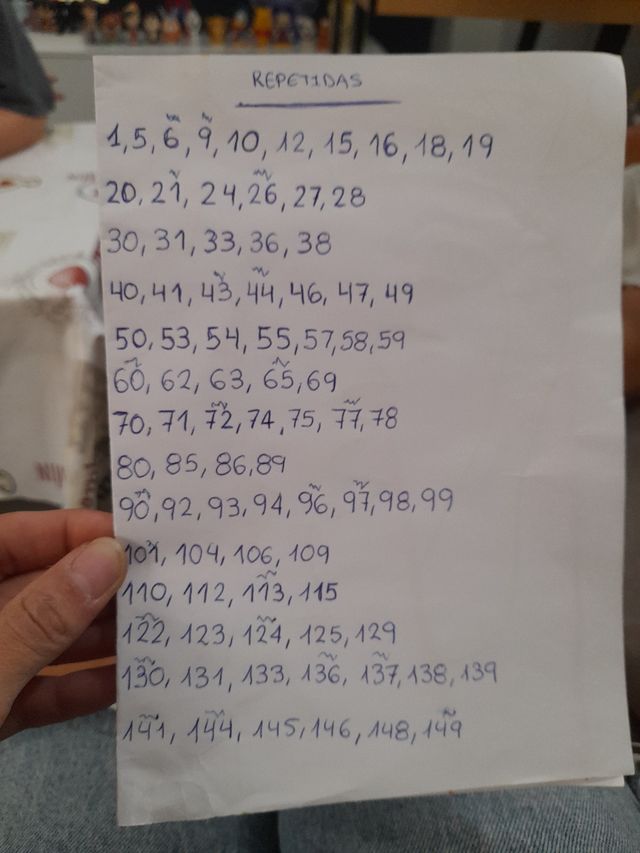 REPETIDAS
1, 5, 6, 9, 10, 12, 15, 16, 18, 19
20, 21, 24, 26, 27, 28
30, 31, 33, 36, 38
40, 41, 43, 44, 46, 47, 49
50, 53, 54, 55, 57, 58, 59
60, 62, 63, 65, 69
70, 71, 72, 74, 75, 77, 78
80, 85, 86, 89
90, 92, 93, 94, 96, 97, 98, 99
101, 104, 106, 109
110, 112, 113, 115
122, 123, 124, 125, 129
130, 131, 133, 136, 137, 138, 139
141, 144, 145, 146, 148, 149